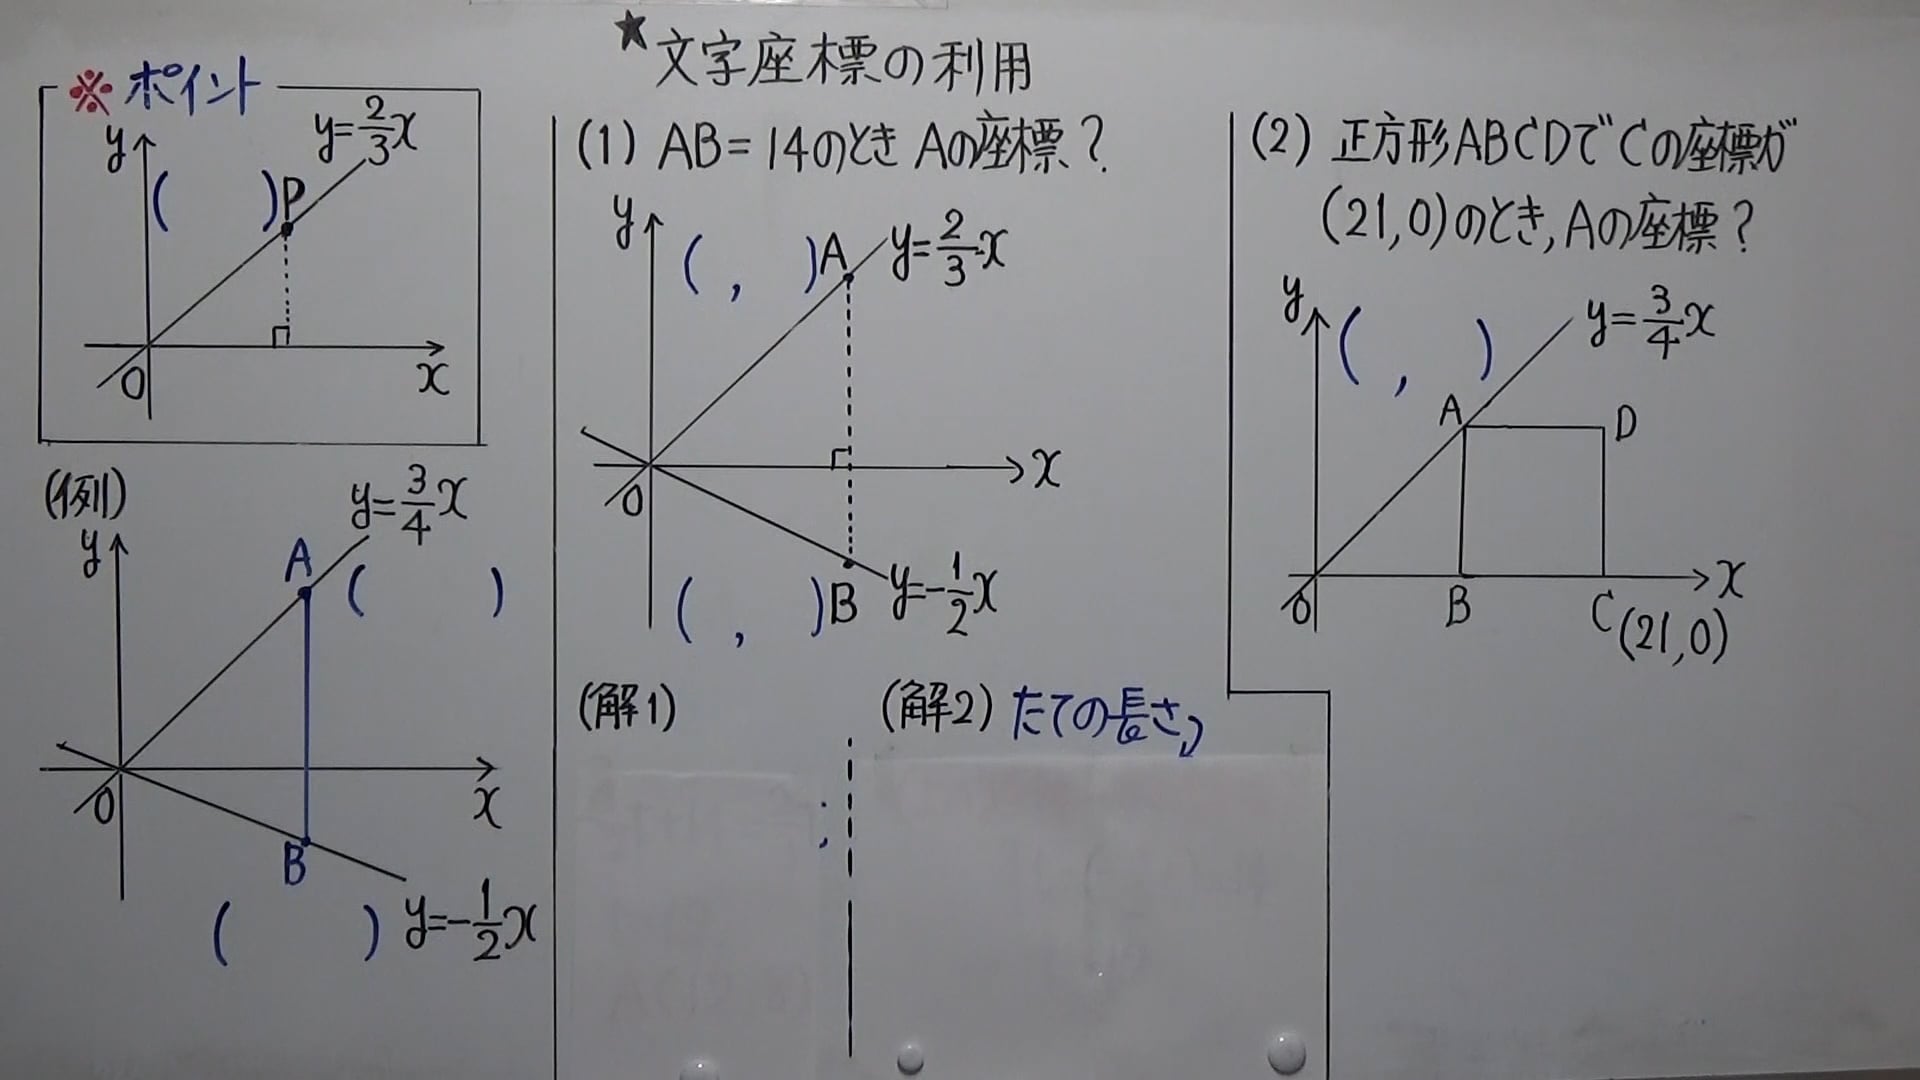 ★文字座標の利用
※ポイント
y
y=2/3x
(　　)P
O
x
(例)
y
y=3/4x
A
(　　)
O
x
B
(　　)
y=-1/2x
(1) AB=14のとき Aの座標?
y
( , )A
y=2/3x
x
O
( , )B
y=-1/2x
(解1)
(解2) たての長さ
(2) 正方形ABCDでCの座標が
(21,0)のとき,Aの座標?
y
( , )
y=3/4x
A
D
x
O
B
C(21,0)